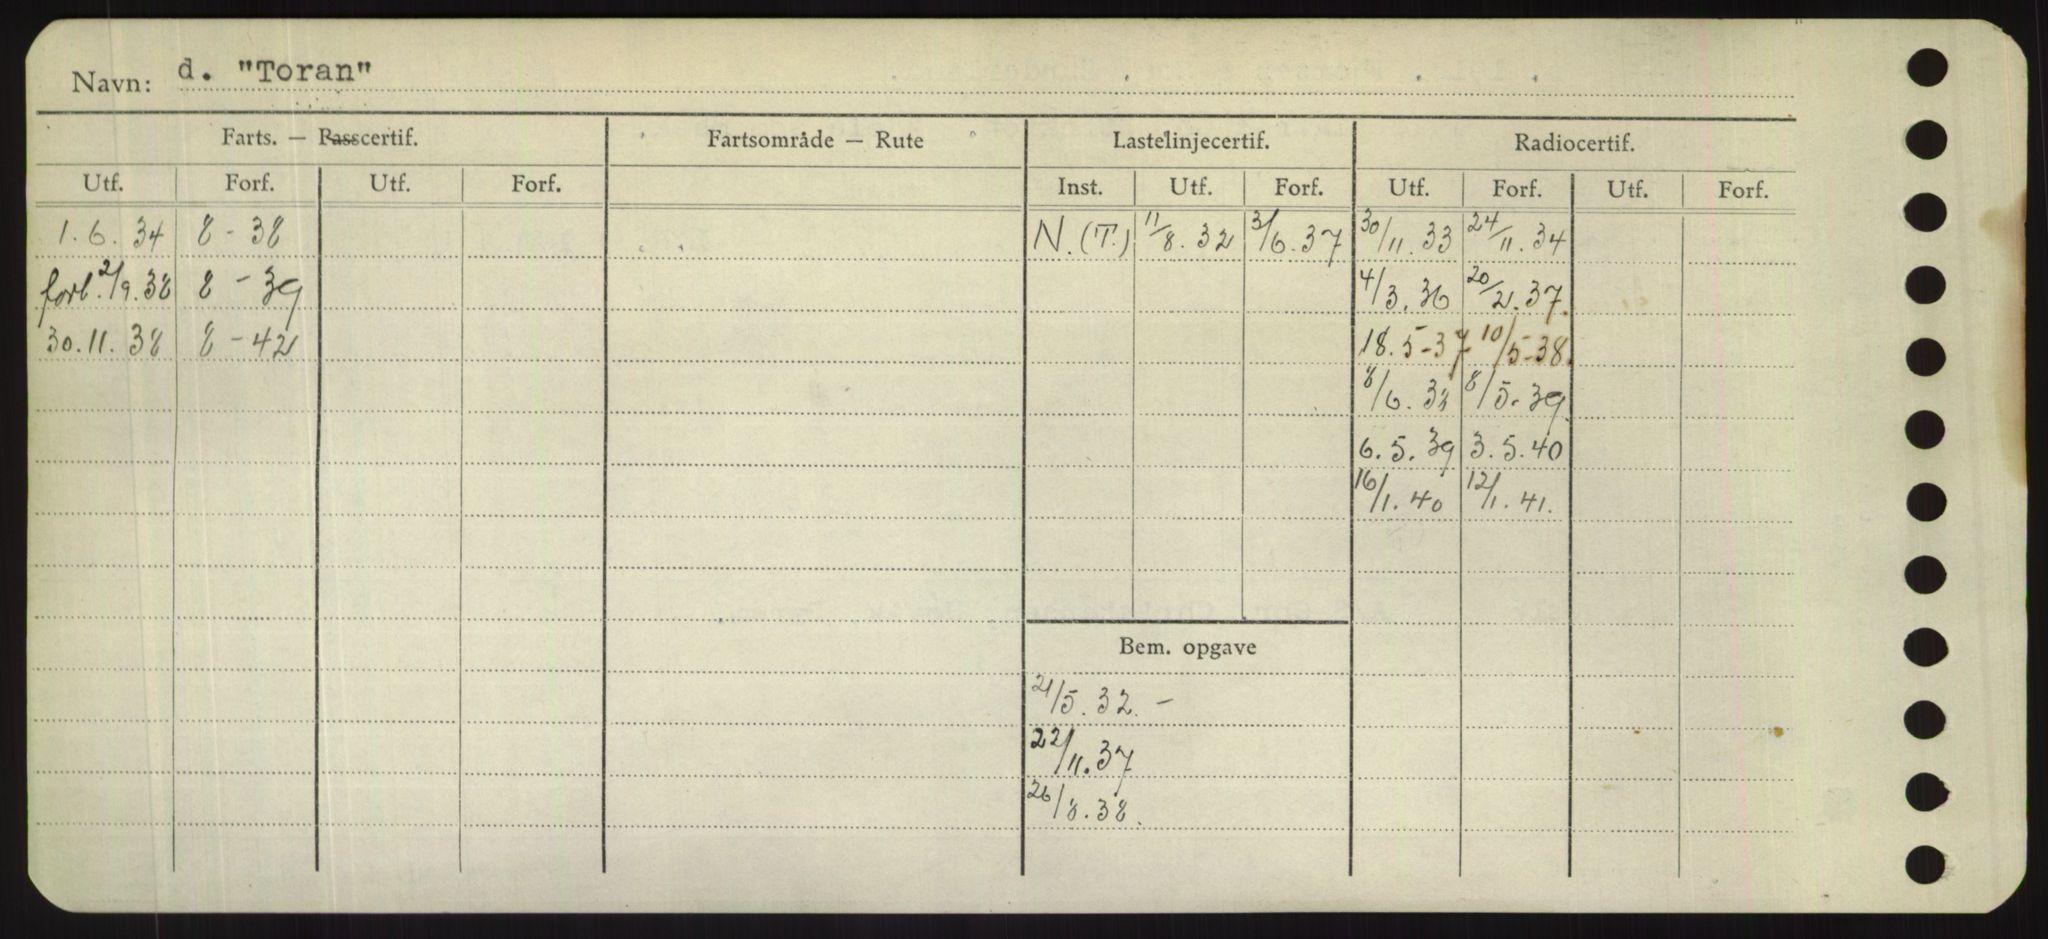 Navn: d. "Toran"
Farts. — Passcertif. Fartsområde — Rute Lastelinjecertif. Radiocertif.
Utf. Forf. Utf. Forf. Inst. Utf. Forf. Utf. Forf. Utf. Forf.
1.6.34 8-38 N.(T.) 11/8.32 3/6.37 30/11.33 24/11.34
forl. 2/9.38 8-39 4/3.36 20/2.37.
30.11.38 8-42 18.5-37 10/5-38.
8/6.38 8/5.39.
6.5.39 3.5.40
16/1.40 12/1.41.
Bem. opgave
21/5.32. -
22/11.37
26/8.38.